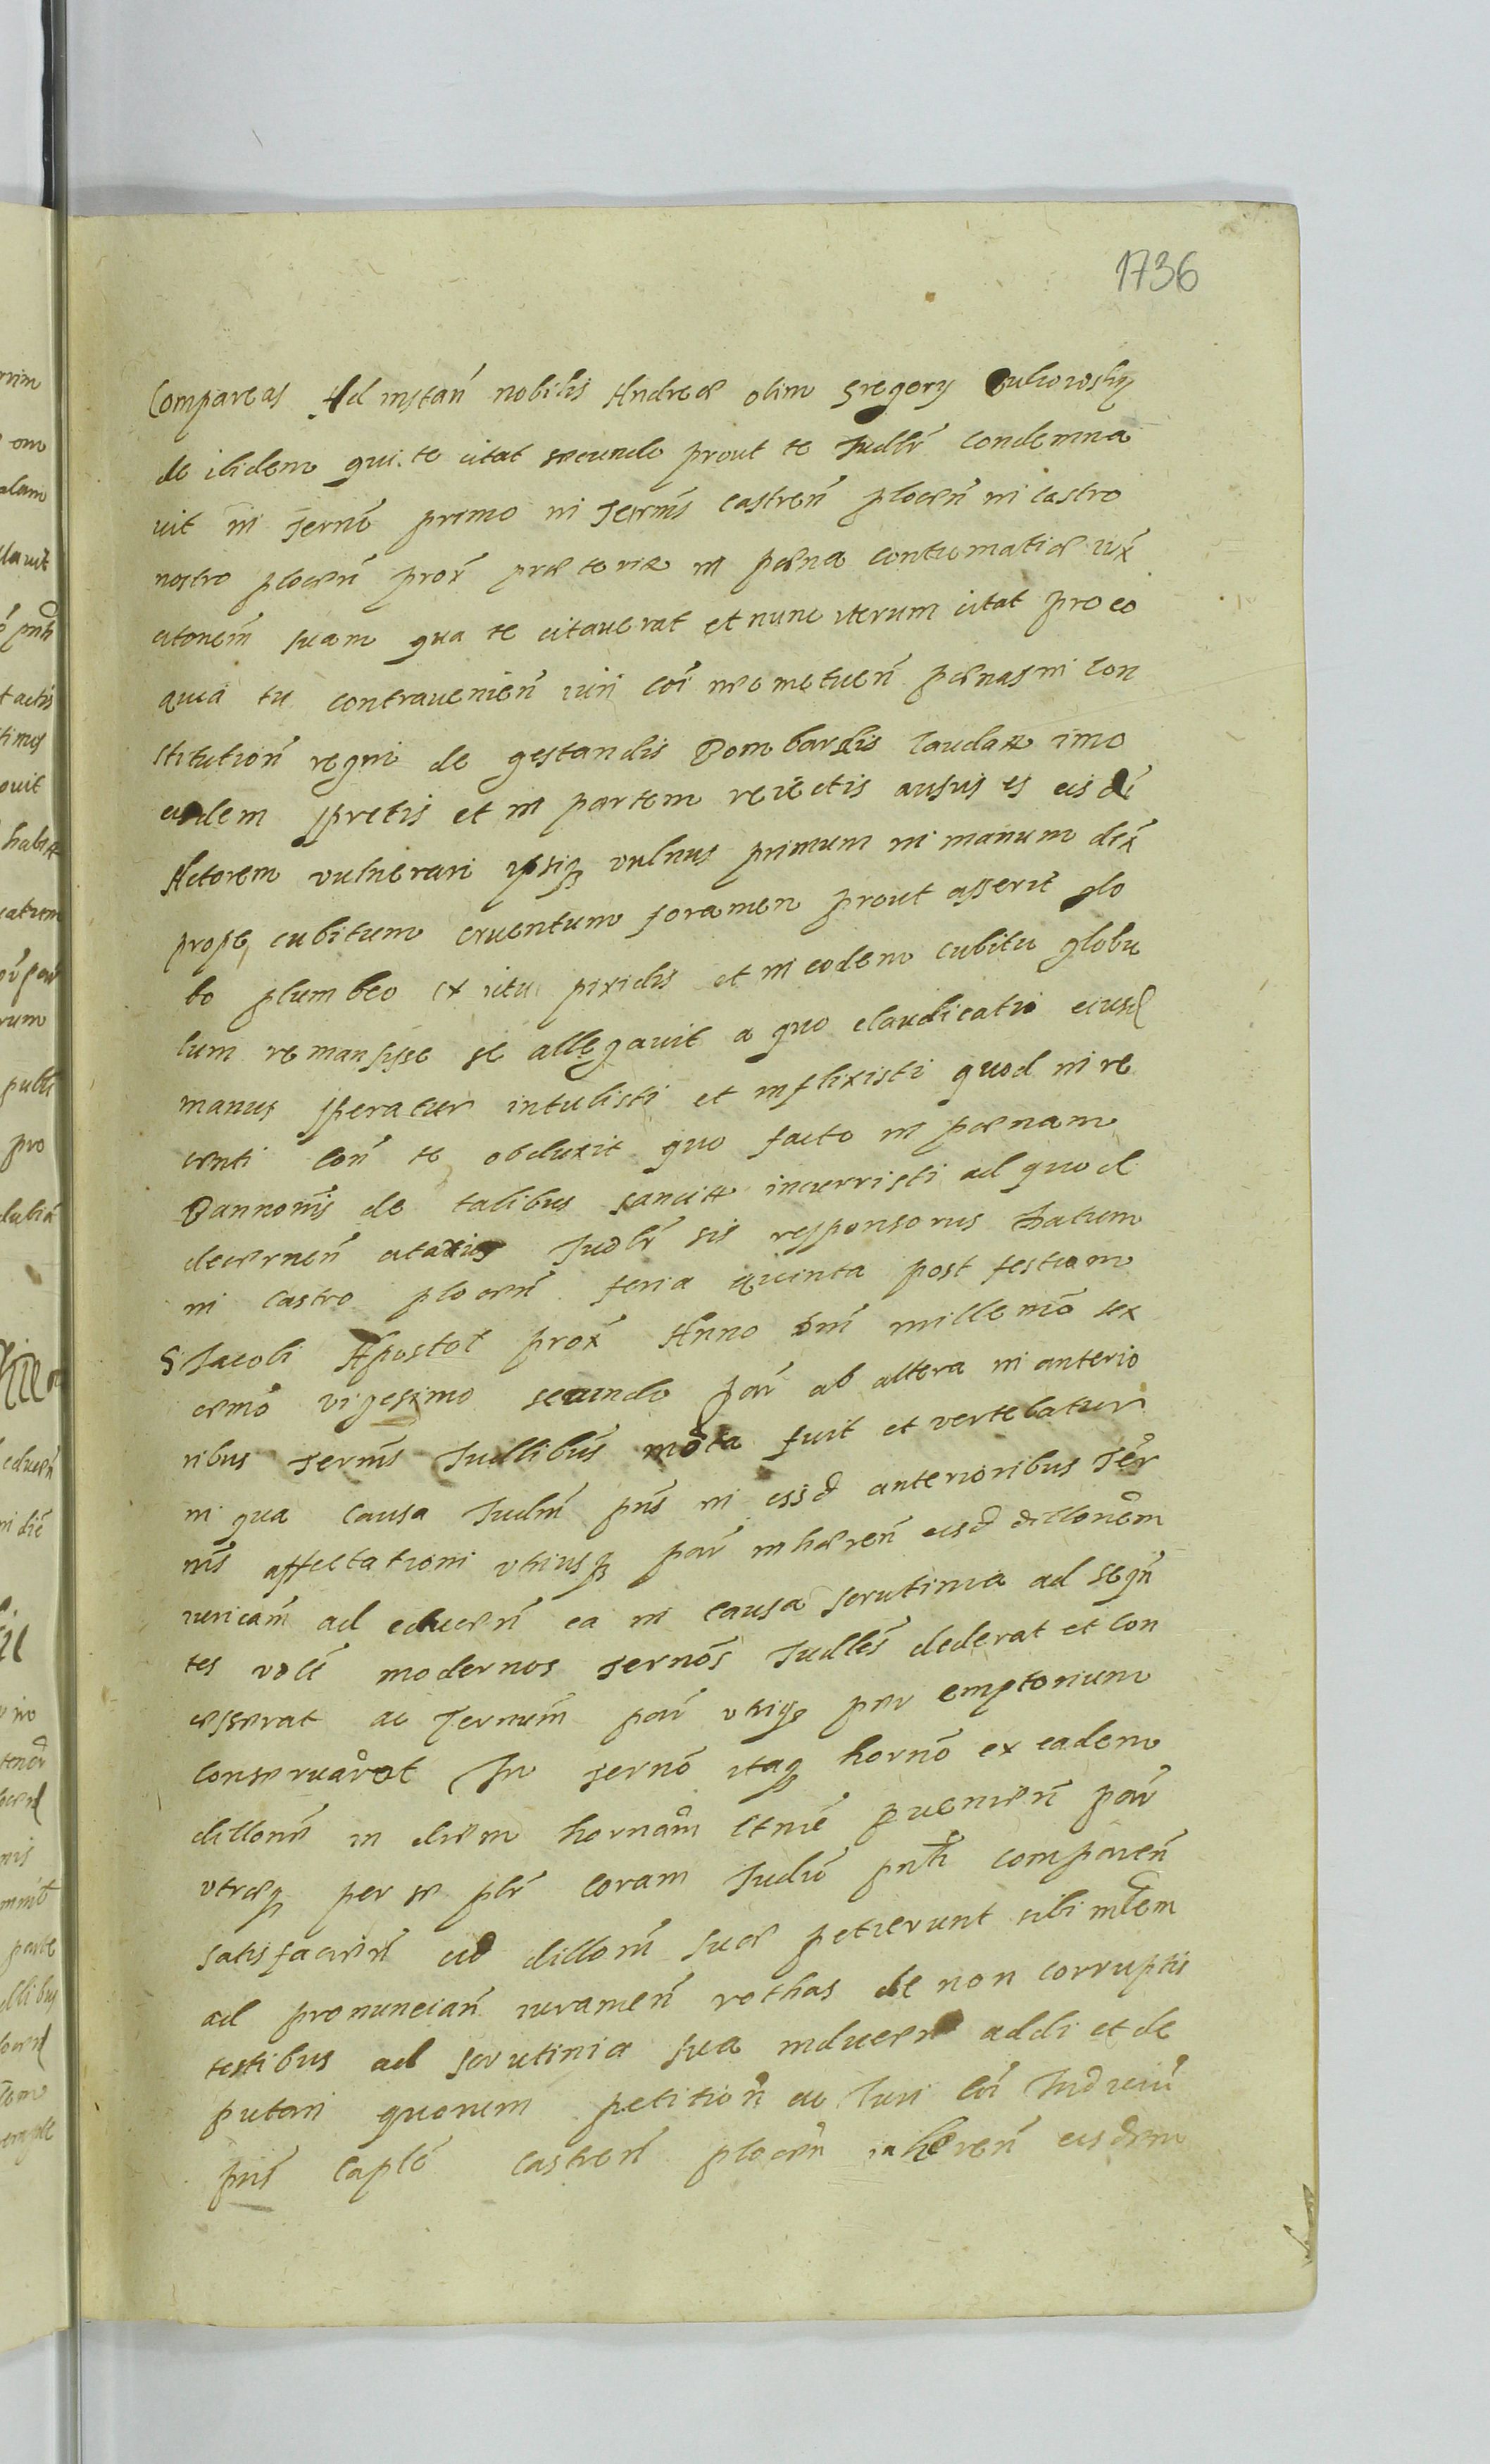 1736
Compareas Ad instan̄ nobilis Andreæ olim Gregorÿ
de ibidem qui te citat secundo prout te Judlr̄ condemna
vit in Termō primo in Termīs castren̄ plocen̄ in castro
nostro plocen̄ prox̄ præterit in pæna contumatiæ iux̄
citonem̄ suam qua te citauerat et nunc iterum citat pro eo
quia tu contrauenien̄ iuri coī nec metuen̄ pænas in con
stitution̄ regni de gestandis Bombardis laudatt imo
eisdem spretis et in partem reiectis ausus es eisdē
Actorem vulnerari ipsiq vulnus primum in manum dex̄
prope cubitum cruentum foramen prout asserit glo
bo plumbeo ex ictu pixidis et in eodem cubitu globu
lum remansisse se allegauit a quo claudicatio eiusd
manus speratur intulisti et inflixisti quod in re
centi con̄ te obduxit quo facto in pænam
Bannonis̄ de talibus sancitt incurristi ad quod
decernen̄ Judlr̄ sis responsorus Datum
in castro plocen̄ feria quinta post festum
S Jacobi Apostol prox̄ Anno Dnī millemō sex
cemō vigesimo secundo par̄ ab altera in anterio
ribus Termīs Judlibus̄ mota fuit et vertebatur
in qua causa Judm̄ pns̄ in eisd anterioribus Ter
mīs affectationi vtriusq par̄ inhæren̄ eisd dillonem̄
iuricam̄ ad educen̄ ea in causa scrutinia ad seqn̄
tes vole modernos Termōs Judles̄ dederat et con
cesserat ac Termum̄ par̄ vtriq peremptorium
conseruârat In Termō itaq hornō ex eadem
dillone in diem hornam̄ ltmē puenien̄ par̄
vtræq per se plr̄ coram Judiō pntī comparen̄
satisfacien̄ eid dillonī suæ petierunt sibi mtem
ad pronuncian̄ iuramen̄ rothas de non corruptis
testibus ad scrutinia sua inducen̄ addi et de
putari quorum petition̄ ac Juri coī Judicium̄
pns̄ Caplē castren̄ plocen̄ inhæren̄ eisdem